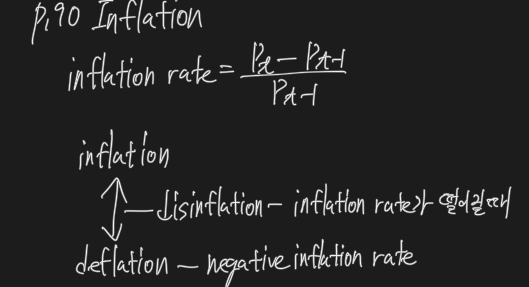 p.90 Inflation
inflation rate = (Pt - Pt-1) / Pt-1
inflation
disinflation - inflation rate가 떨어질때
deflation - negative inflation rate